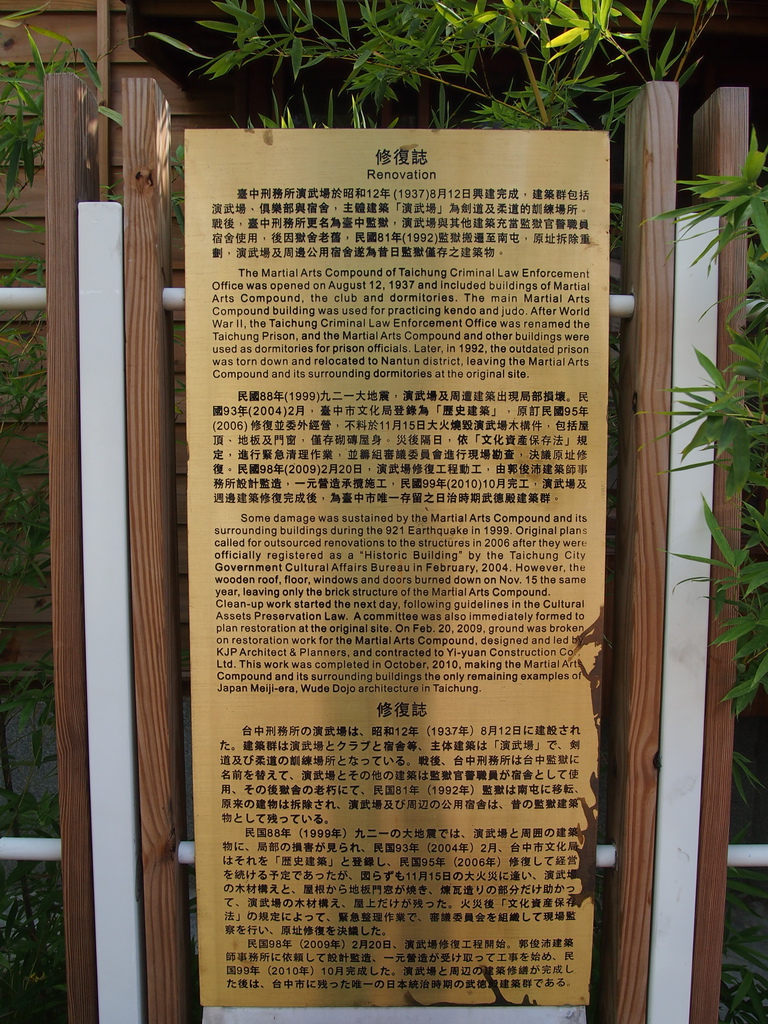 修復誌
Renovation
臺中刑務所演武場於昭和12年(1937)8月12日興建完成，建築群包括
演武場、俱樂部與宿舍，主體建築「演武場」為劍道及柔道的訓練場所。
戰後，臺中刑務所更名為臺中監獄，演武場與其他建築充當監獄官警職員
宿舍使用，後因獄舍老舊，民國81年(1992)監獄搬遷至南屯，原址拆除重
劃，演武場及周邊公用宿舍遂為昔日監獄僅存之建築物。
The Martial Arts Compound of Taichung Criminal Law Enforcement
Office was opened on August 12, 1937 and included buildings of Martial
Arts Compound, the club and dormitories. The main Martial Arts
Compound building was used for practicing kendo and judo. After World
War II, the Taichung Criminal Law Enforcement Office was renamed the
Taichung Prison, and the Martial Arts Compound and other buildings were
used as dormitories for prison officials. Later, in 1992, the outdated prison
was torn down and relocated to Nantun district, leaving the Martial Arts
Compound and its surrounding dormitories at the original site.
民國88年(1999)九二一大地震，演武場及周遭建築出現局部損壞。民
國93年(2004)2月，臺中市文化局登錄為「歷史建築」，原訂民國95年
(2006)修復並委外經營，不料於11月15日大火燒毀演武場木構件，包括屋
頂、地板及門窗，僅存砌磚屋身。災後隔日，依「文化資產保存法」規
定，進行緊急清理作業，並籌組審議委員會進行現場勘查，決議原址修
復。民國98年(2009)2月20日，演武場修復工程動工，由郭俊沛建築師事
務所設計監造，一元營造承攬施工，民國99年(2010)10月完工，演武場及
週邊建築修復完成後，為臺中市唯一存留之日治時期武德殿建築群。
Some damage was sustained by the Martial Arts Compound and its
surrounding buildings during the 921 Earthquake in 1999. Original plans
called for outsourced renovations to the structures in 2006 after they were
officially registered as a "Historic Building" by the Taichung City
Government Cultural Affairs Bureau in February, 2004. However, the
wooden roof, floor, windows and doors burned down on Nov. 15 the same
year, leaving only the brick structure of the Martial Arts Compound.
Clean-up work started the next day, following guidelines in the Cultural
Assets Preservation Law. A committee was also immediately formed to
plan restoration at the original site. On Feb. 20, 2009, ground was broken
on restoration work for the Martial Arts Compound, designed and led by
KJP Architect & Planners, and contracted to Yi-yuan Construction Co.,
Ltd. This work was completed in October, 2010, making the Martial Arts
Compound and its surrounding buildings the only remaining examples of
Japan Meiji-era, Wude Dojo architecture in Taichung.
修復誌
台中刑務所の演武場は、昭和12年（1937年）8月12日に建設され
た。建築群は演武場とクラブと宿舍等、主体建築は「演武場」で、剣
道及び柔道の訓練場所となっている。戦後、台中刑務所は台中監獄に
名前を替えて、演武場とその他の建築は監獄官警職員が宿舍として使
用、その後獄舍の老朽にて、民国81年（1992年）監獄は南屯に移転、
原来の建物は拆除され、演武場及び周辺の公用宿舍は、昔の監獄建築
物として残っている。
民国88年（1999年）九二一の大地震では、演武場と周囲の建築
物に、局部の損害が見られ、民国93年（2004年）2月、台中市文化局
はそれを「歴史建築」と登録し、民国95年（2006年）修復して経営
を続ける予定であったが、図らずも11月15日の大火災に逢い、演武場
の木材構えと、屋根から地板門窓が焼き、煉瓦造りの部分だけ助かっ
て、演武場の木材構え、屋上だけが残った。火災後「文化資産保存
法」の規定によって、緊急整理作業で、審議委員会を組織して現場監
察を行い、原址修復を決議した。
民国98年（2009年）2月20日、演武場修復工程開始。郭俊沛建築
師事務所に依頼して設計監造、一元営造が受け取って工事を始め、民
国99年（2010年）10月完成した。演武場と周辺の建築修繕が完成し
た後は、台中市に残った唯一の日本統治時期の武徳殿建築群である。